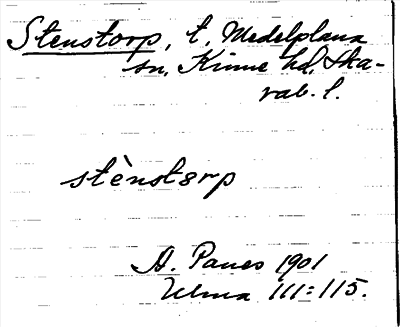 Stenstorp, t. Medelplana
sn, Kinne hd, Ska-
rab. l.
stènstorp
A. Paues 1901
Ulma 111:115.